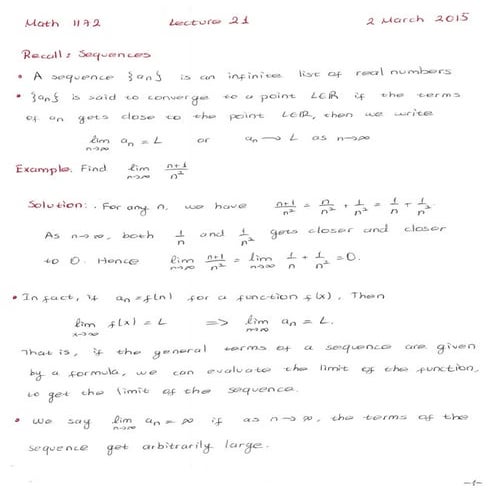 Math 1172 Lecture 21 2 March 2015
Recall: Sequences
• A sequence {an} is an infinite list of real numbers
• {an} is said to converge to a point L∈ℝ if the terms
of an gets close to the point L∈ℝ, then we write
lim n→∞ an = L or an → L as n→∞
Example: Find lim n→∞ (n+1)/n²
Solution: . For any n, we have (n+1)/n² = n/n² + 1/n² = 1/n + 1/n².
As n→∞, both 1/n and 1/n² gets closer and closer
to 0. Hence lim n→∞ (n+1)/n² = lim n→∞ 1/n + 1/n² = 0.
• In fact, if an = f(n) for a function f(x), Then
lim x→∞ f(x) = L => lim n→∞ an = L.
That is, if the general terms of a sequence are given
by a formula, we can evaluate the limit of the function,
to get the limit of the sequence.
• We say lim n→∞ an = ∞ if as n→∞, the terms of the
sequence get arbitrarily large.
-1-